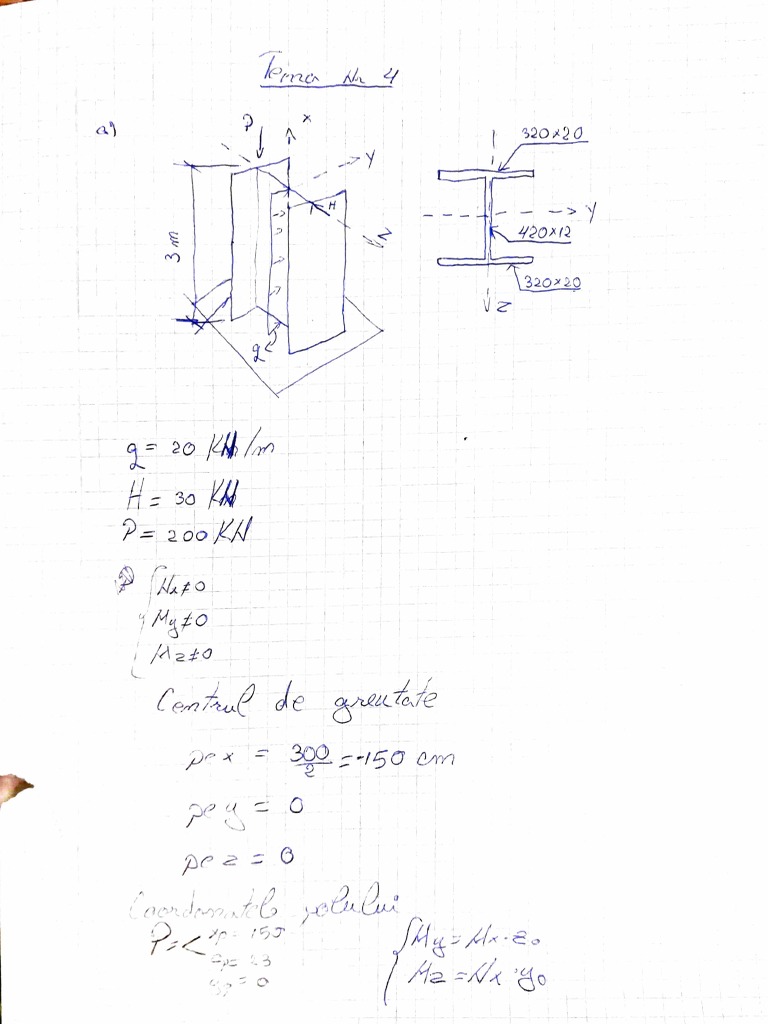 Tema Nr 4
a)
P
x
y
H
z
3 m
q
320x20
y
420x12
320x20
z
q = 20 KN/m
H = 30 KN
P = 200 KN
Nx≠0
My≠0
Mz≠0
Centrul de greutate
pe x = 300/2 = 150 cm
pe y = 0
pe z = 0
Coordonatele polului
P = < xp = 150
zp = 23
yp = 0
My = Nx · z0
Mz = Nx · y0